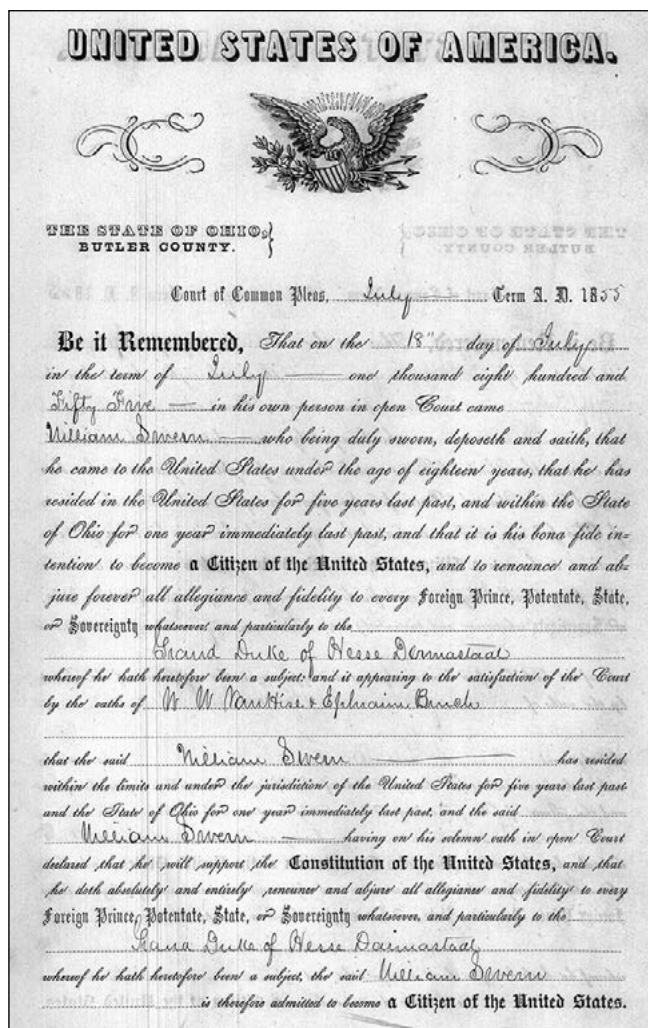 UNITED STATES OF AMERICA.
THE STATE OF OHIO,
BUTLER COUNTY.
Court of Common Pleas, July Term A. D. 1855
Be it Remembered, That on the 18" day of July
in the term of July one thousand eight hundred and
Fifty Five in his own person in open Court came
William Swern who being duly sworn, deposeth and saith, that
he came to the United States under the age of eighteen years, that he has
resided in the United States for five years last past, and within the State
of Ohio for one year immediately last past, and that it is his bona fide in-
tention to become a Citizen of the United States, and to renounce and ab-
jure forever all allegiance and fidelity to every Foreign Prince, Potentate, State,
or Sovereignty whatsoever and particularly to the
Grand Duke of Hesse Dermastadt
whereof he hath heretofore been a subject: and it appearing to the satisfaction of the Court
by the oaths of W W VanHise & Ephraim
that the said William Swern has resided
within the limits and under the jurisdiction of the United States for five years last past
and the State of Ohio for one year immediately last past, and the said
William Swern having on his solemn oath in open Court
declared that he will support the Constitution of the United States, and that
he doth absolutely and entirely renounce and abjure all allegiance and fidelity to every
Foreign Prince, Potentate, State, or Sovereignty whatsoever, and particularly to the
Grand Duke of Hesse Darmastadt
whereof he hath heretofore been a subject, the said William Swern
is therefore admitted to become a Citizen of the United States.